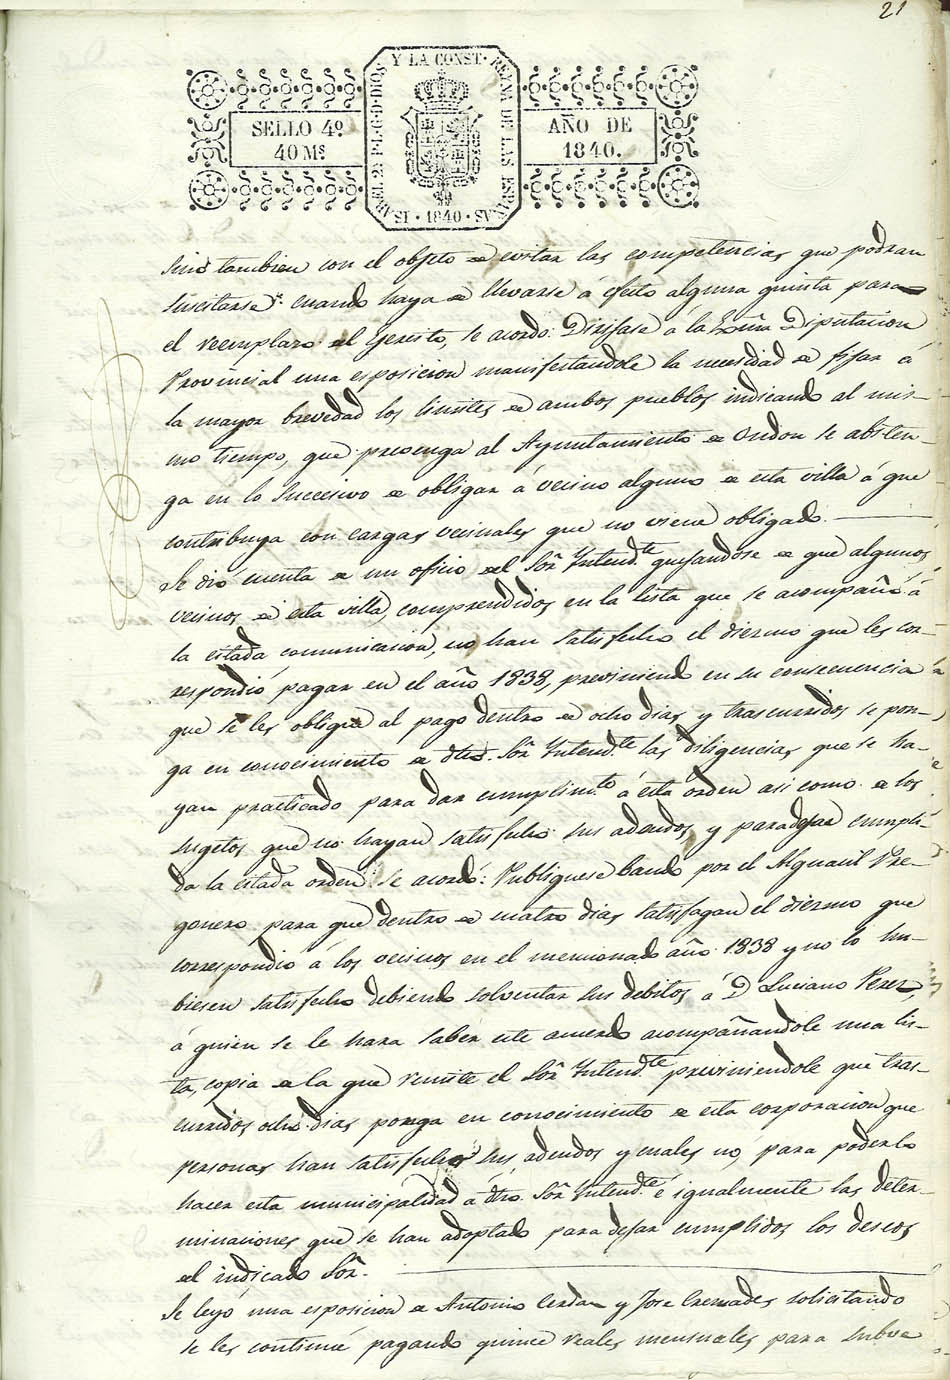 21
Y LA CONST. REYNA DE LAS ESPAÑAS
ISABEL 2ª P. L. G. D. DIOS
SELLO 4º
40 Mˢ
AÑO DE
1840.
· 1840 ·
sino tambien con el objeto de evitar las competencias que podran
suscitarse cuando haya de llevarse á efeto alguna quinta para
el reemplazo del Gercito, se acordo: Dirijase á la Exma Diputacion
Provincial una esposicion manifestandole la necesidad de fijar á
la mayor brevedad los limites de ambos pueblos indicando al mis-
mo tiempo, que prevenga al Ayuntamiento de Ondon se absten-
ga en lo succesivo de obligar á vecino alguno de esta villa á que
contribuya con cargas vecinales que no viene obligado.
Se dio cuenta de un oficio del Sôr Intend.te quejandose de que algunos
vecinos de esta villa, comprendidos en la lista que se acompaña á
la citada comunicacion, no han satisfecho el diezmo que les cor-
respondió pagar en el año 1838, previniendo en su consecuencia
que se les obligue al pago dentro de ocho dias, y trascurridos se pon-
ga en conocimiento de dho. Sôr Intend.te las diligencias que se ha-
yan practicado para dar cumplim.to á esta orden asi como de los
sugetos que no hayan satisfecho sus adeudos, y para dejar cumpli-
da la citada orden: se acordó: Publiquese bando por el Alguacil Pre-
gonero para que dentro de cuatro dias satisfagan el diezmo que
correspondió á los vecinos en el mencionado año 1838 y no lo hu-
biesen satisfecho debiendo solventar sus debitos á D Luciano Perez,
á quien se le hara saber este acuerdo acompañandole una lis-
ta, copia de la que remite el Sôr Intend.te previniendole que tras-
curridos ocho dias ponga en conocimiento de esta corporacion que
personas han satisfecho sus adeudos y cuales no, para poderlo
hacer esta municipalidad á dho. Sôr Intend.te é igualmente las deter-
minaciones que se han adoptado para dejar cumplidos los deseos
del indicado Sôr.
Se leyó una esposicion de Antonio Cerdan y Jose Cremades solicitando
se les continue pagando quince reales mensuales para subve